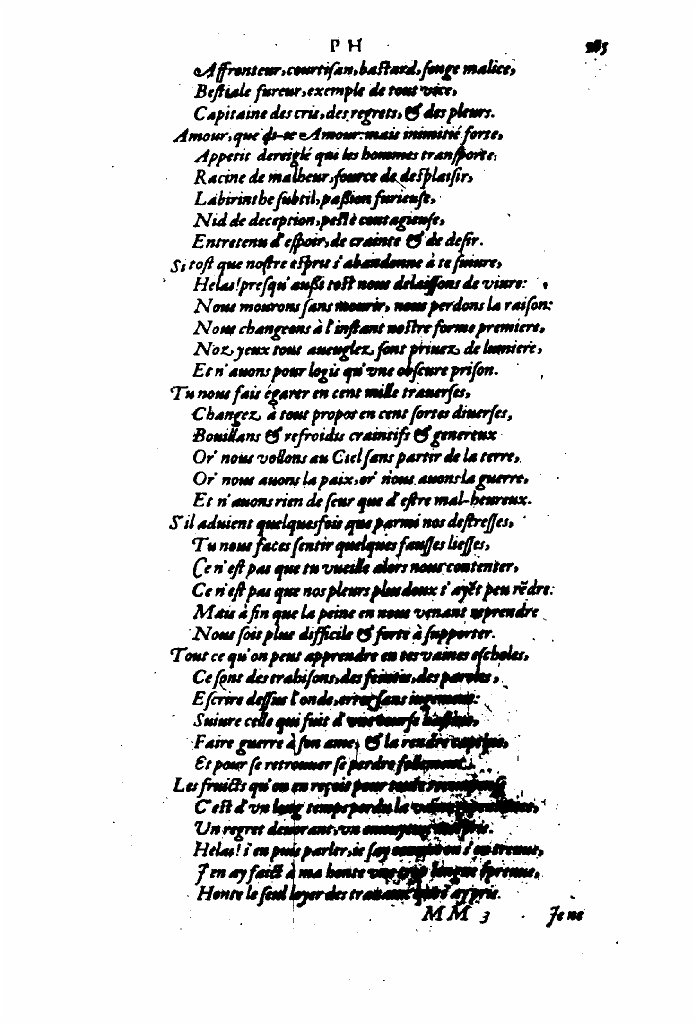 P H
Affronteur, courtisan, bastard, songe malice,
Bestiale fureur, exemple de tout vice,
Capitaine des cris, des regrets, & des pleurs.
Amour, que dy-ie Amour: mais inimitié forte,
Appetit dereiglé qui les hommes transporte,
Racine de malheur, source de desplaisir,
Labirinthe subtil, passion furieuse,
Nid de deception, peste contagieuse,
Entretenu d'espoir, de crainte & de desir.
Si tost que nostre esprit s'abandonne à te suiure,
Helas! presqu'aussi tost nous delaissons de viure:
Nous mourons sans mourir, nous perdons la raison:
Nous changeons à l'instant nostre forme premiere,
Noz yeux tous aueuglez, sont priuez de lumiere,
Et n'auons pour logis qu'vne obscure prison.
Tu nous fais egarer en cent mille trauerses,
Changez à tout propos en cent sortes diuerses,
Bouillans & refroidis craintifs & genereux
Or' nous vollons au Ciel sans partir de la terre,
Or' nous auons la paix, or' nous auons la guerre,
Et n'auons rien de seur que d'estre mal-heureux.
S'il aduient quelquesfois que parmi nos destresses,
Tu nous faces sentir quelques fausses liesses,
Ce n'est pas que tu vueille alors nous contenter,
Ce n'est pas que nos pleurs plus doux t'ayẽt peu rẽdre:
Mais à fin que la peine en nous venant reprendre
Nous soit plus difficile & forte à supporter.
Tout ce qu'on peut apprendre en tes vaines escholes,
Ce sont des trahisons, des feintes, des paroles,
Escrire dessus l'onde, errer sans iugement:
Suiure celle qui fuit d'vne course hastiue,
Faire guerre à son ame, & la rendre captiue,
Et pour se retrouuer se perdre follement.
Les fruicts qu'on en reçoit pour toute recompense
C'est d'vn long temps perdu la
Un regret deuorant, vn ennuyeux mespris.
Helas! i'en puis parler, ie sçay comme on s'en treuue,
J'en ay faict à ma honte vne trop longue épreuue,
Honte le seul loyer des trauaux que i'ay pris.
MM 3 Je ne